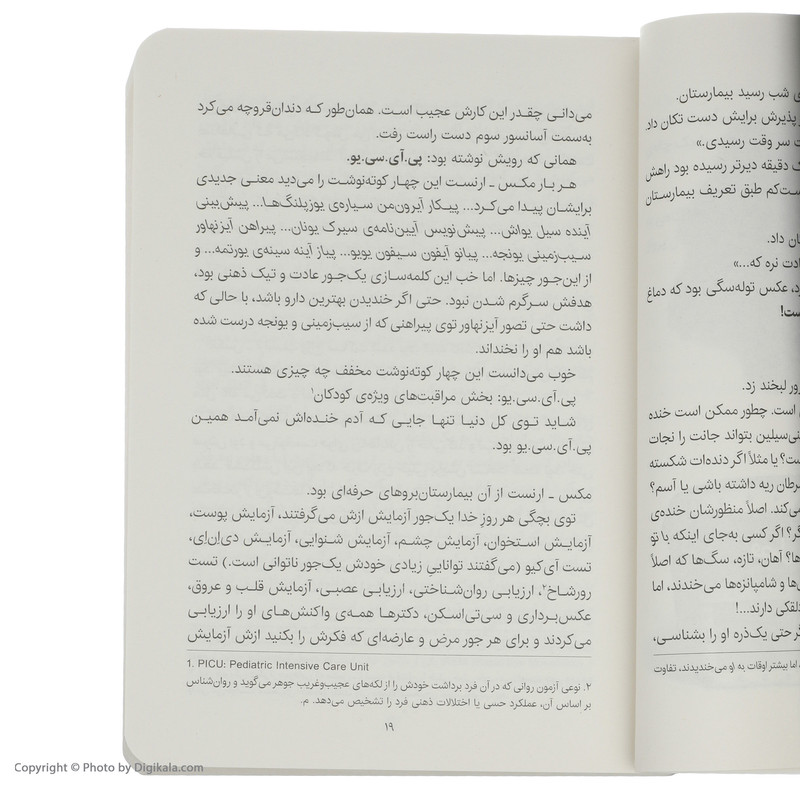 ی شب رسید بیمارستان.
پذیرش برایش دست تکان داد
ت سر وقت رسیدی.»
ک دقیقه دیرتر رسیده بود راهش
ست‌کم طبق تعریف بیمارستان
ان داد.
ادت نره که...»
د، عکس توله‌سگی بود که دماغ
است!
ور لبخند زد.
م است. چطور ممکن است خنده
نی‌سیلین بتواند جانت را نجات
ست؟ یا مثلاً اگر دنده‌ات شکسته
رطان ریه داشته باشی یا آسم؟
می‌کند. اصلاً منظورشان خنده‌ی
گر؟ اگر کسی به‌جای اینکه با تو
ها؟ آهان، تازه، سگ‌ها که اصلاً
ی‌ها و شامپانزه‌ها می‌خندند، اما
دلقکی دارند...!
گر حتی یک‌ذره او را بشناسی،
، اما بیشتر اوقات به او می‌خندیدند، تفاوت
می‌دانی چقدر این کارش عجیب است. همان‌طور که دندان‌قروچه می‌کرد
به‌سمت آسانسور سوم دست راست رفت.
همانی که رویش نوشته بود: پی.آی.سی.یو.
هر بار مکس ـ ارنست این چهار کوته‌نوشت را می‌دید معنی جدیدی
برایشان پیدا می‌کرد... پیکار آیرون‌من سیاره‌ی یوزپلنگ‌ها... پیش‌بینی
آینده سیل یواش... پیش‌نویس آیین‌نامه‌ی سیرک یونان... پیراهن آیزنهاور
سیب‌زمینی یونجه... پیانو آیفون سیفون یویو... پیاز آینه سینه‌ی یورتمه... و
از این‌جور چیزها. اما خب این کلمه‌سازی یک‌جور عادت و تیک ذهنی بود،
هدفش سرگرم شدن نبود. حتی اگر خندیدن بهترین دارو باشد، با حالی که
داشت حتی تصور آیزنهاور توی پیراهنی که از سیب‌زمینی و یونجه درست شده
باشد هم او را نخنداند.
خوب می‌دانست این چهار کوته‌نوشت مخفف چه چیزی هستند.
پی.آی.سی.یو: بخش مراقبت‌های ویژه‌ی کودکان۱
شاید توی کل دنیا تنها جایی که آدم خنده‌اش نمی‌آمد همین
پی.آی.سی.یو بود.
مکس ـ ارنست از آن بیمارستان‌بروهای حرفه‌ای بود.
توی بچگی هر روزِ خدا یک‌جور آزمایش ازش می‌گرفتند، آزمایش پوست،
آزمایش استخوان، آزمایش چشم، آزمایش شنوایی، آزمایش دی‌اِن‌اِی،
تست آی‌کیو (می‌گفتند تواناییِ زیادی خودش یک‌جور ناتوانی است.) تست
رورشاخ۲، ارزیابی روان‌شناختی، ارزیابی عصبی، آزمایش قلب و عروق،
عکس‌برداری و سی‌تی‌اسکن، دکترها همه‌ی واکنش‌های او را ارزیابی
می‌کردند و برای هر جور مرض و عارضه‌ای که فکرش را بکنید ازش آزمایش
1. PICU: Pediatric Intensive Care Unit
۲. نوعی آزمون روانی که در آن فرد برداشت خودش را از لکه‌های عجیب‌وغریب جوهر می‌گوید و روان‌شناس
بر اساس آن، عملکرد حسی یا اختلالات ذهنی فرد را تشخیص می‌دهد. م.
۱۹
Copyright © Photo by Digikala.com